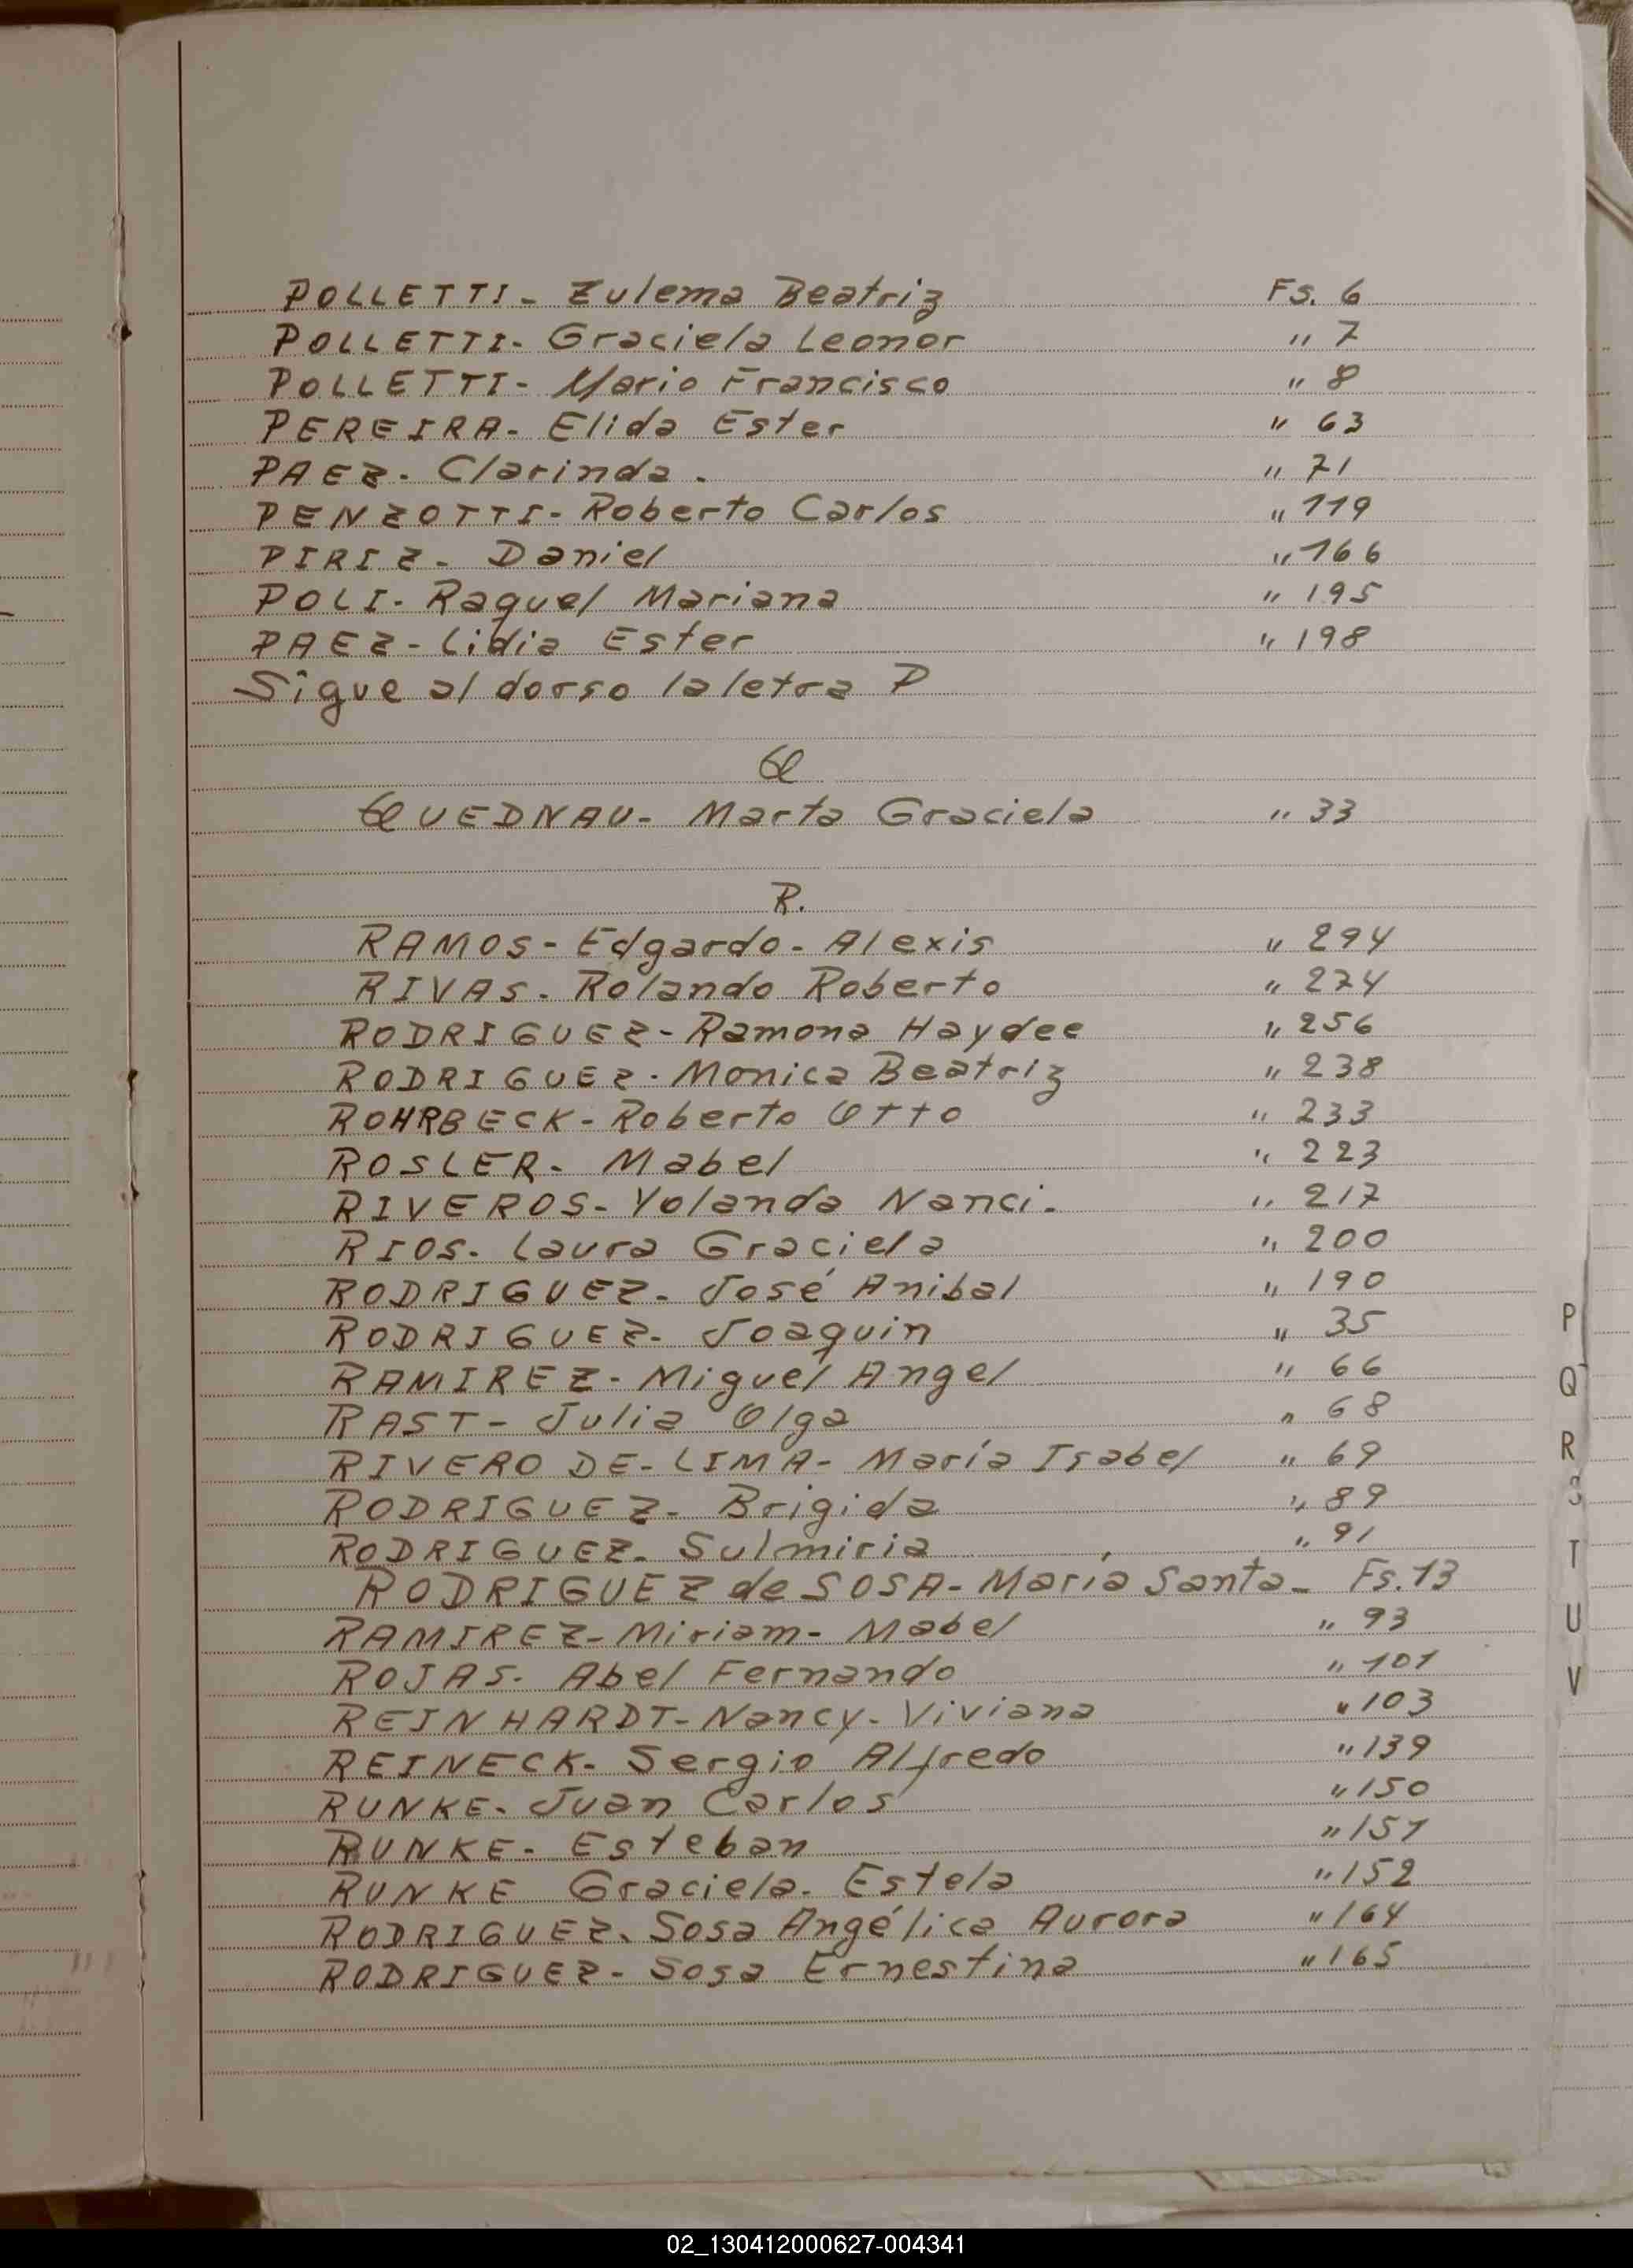 POLLETTI- Zulema Beatriz Fs. 6
POLLETTI- Graciela Leonor " 7
POLLETTI- Mario Francisco " 8
PEREIRA- Elida Ester " 63
PAEZ- Clarinda. " 71
PENZOTTI- Roberto Carlos " 119
PIRIZ- Daniel " 166
POLI- Raquel Mariana " 195
PAEZ- Lidia Ester " 198
Sigue al dorso la letra P
Q
QUEDNAU- Marta Graciela " 33
R.
RAMOS- Edgardo- Alexis " 294
RIVAS- Rolando Roberto " 274
RODRIGUEZ- Ramona Haydee " 256
RODRIGUEZ- Monica Beatriz " 238
ROHRBECK- Roberto Otto " 233
ROSLER- Mabel " 223
RIVEROS- Yolanda Nanci- " 217
RIOS- Laura Graciela " 200
RODRIGUEZ- José Anibal " 190
RODRIGUEZ- Joaquin " 35
RAMIREZ- Miguel Angel " 66
RAST- Julia Olga " 68
RIVERO DE- LIMA- María Isabel " 69
RODRIGUEZ- Brigida " 89
RODRIGUEZ- Sulmiria " 91
RODRIGUEZ de SOSA- María Santa- Fs. 13
RAMIREZ- Miriam- Mabel " 93
ROJAS- Abel Fernando " 101
REINHARDT- Nancy- Viviana " 103
REINECK- Sergio Alfredo " 139
RUNKE- Juan Carlos " 150
RUNKE- Esteban " 151
RUNKE Graciela- Estela " 152
RODRIGUEZ- Sosa Angélica Aurora " 164
RODRIGUEZ- Sosa Ernestina " 165
P
Q
R
S
T
U
V
02_130412000627-004341